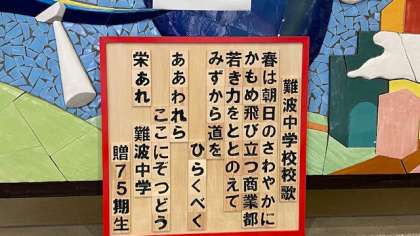 難波中学校校歌
春は朝日のさわやかに
かもめ飛び立つ商業都
若き力をととのえて
みずから道を
ひらくべく
ああわれら
ここにぞつどう
栄あれ
難波中学
贈75期生